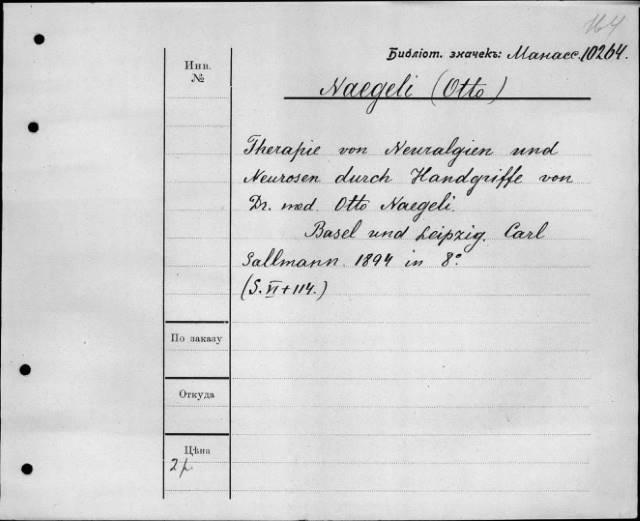 164
Библіот. значекъ: Манасс. 10264.
Инв.
№
Naegeli (Otto)
Therapie von Neuralgien und
Neurosen durch Handgriffe von
Dr. med. Otto Naegeli.
Basel und Leipzig. Carl
Sallmann. 1894 in 8°
(S. VI + 114.)
По заказу
Откуда
Цѣна
2 р